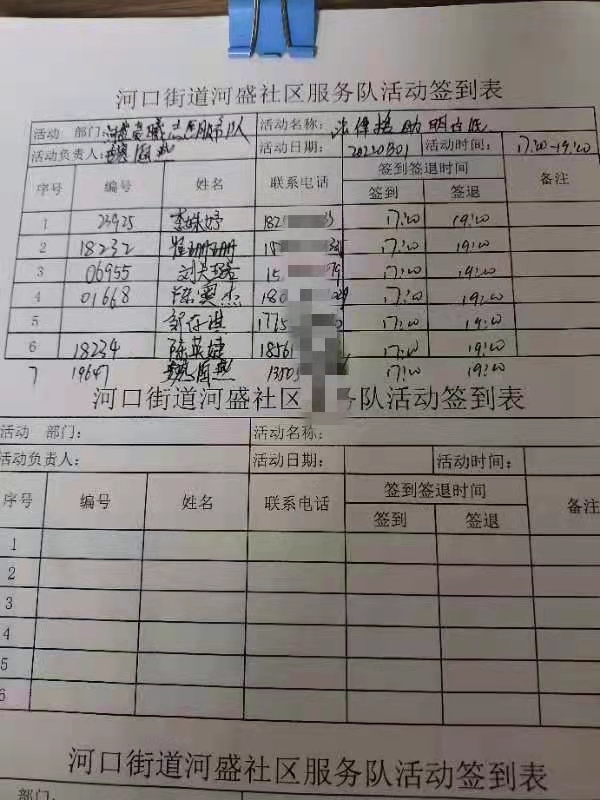 河口街道河盛社区服务队活动签到表
活动 部门： 志愿服务队 活动名称： 法律援助明白纸
活动负责人： 活动日期： 20220301 活动时间： 17:20-19:20
序号 编号 姓名 联系电话 签到签退时间 备注
签到 签退
1 23925 李姝妤 182 17:20 19:20
2 18232 崔珊珊 17:20 19:20
3 06955 15 79 17:20 19:20
4 01668 陈奕杰 17:20 19:20
5 邹存淇 17:20 19:20
6 18234 陈英婕 18561 17:20 19:20
7 19647 17:20 19:20
河口街道河盛社区服务队活动签到表
活动 部门： 活动名称：
活动负责人： 活动日期： 活动时间：
序号 编号 姓名 联系电话 签到签退时间 备注
签到 签退
1
2
3
4
5
6
河口街道河盛社区服务队活动签到表
部门：